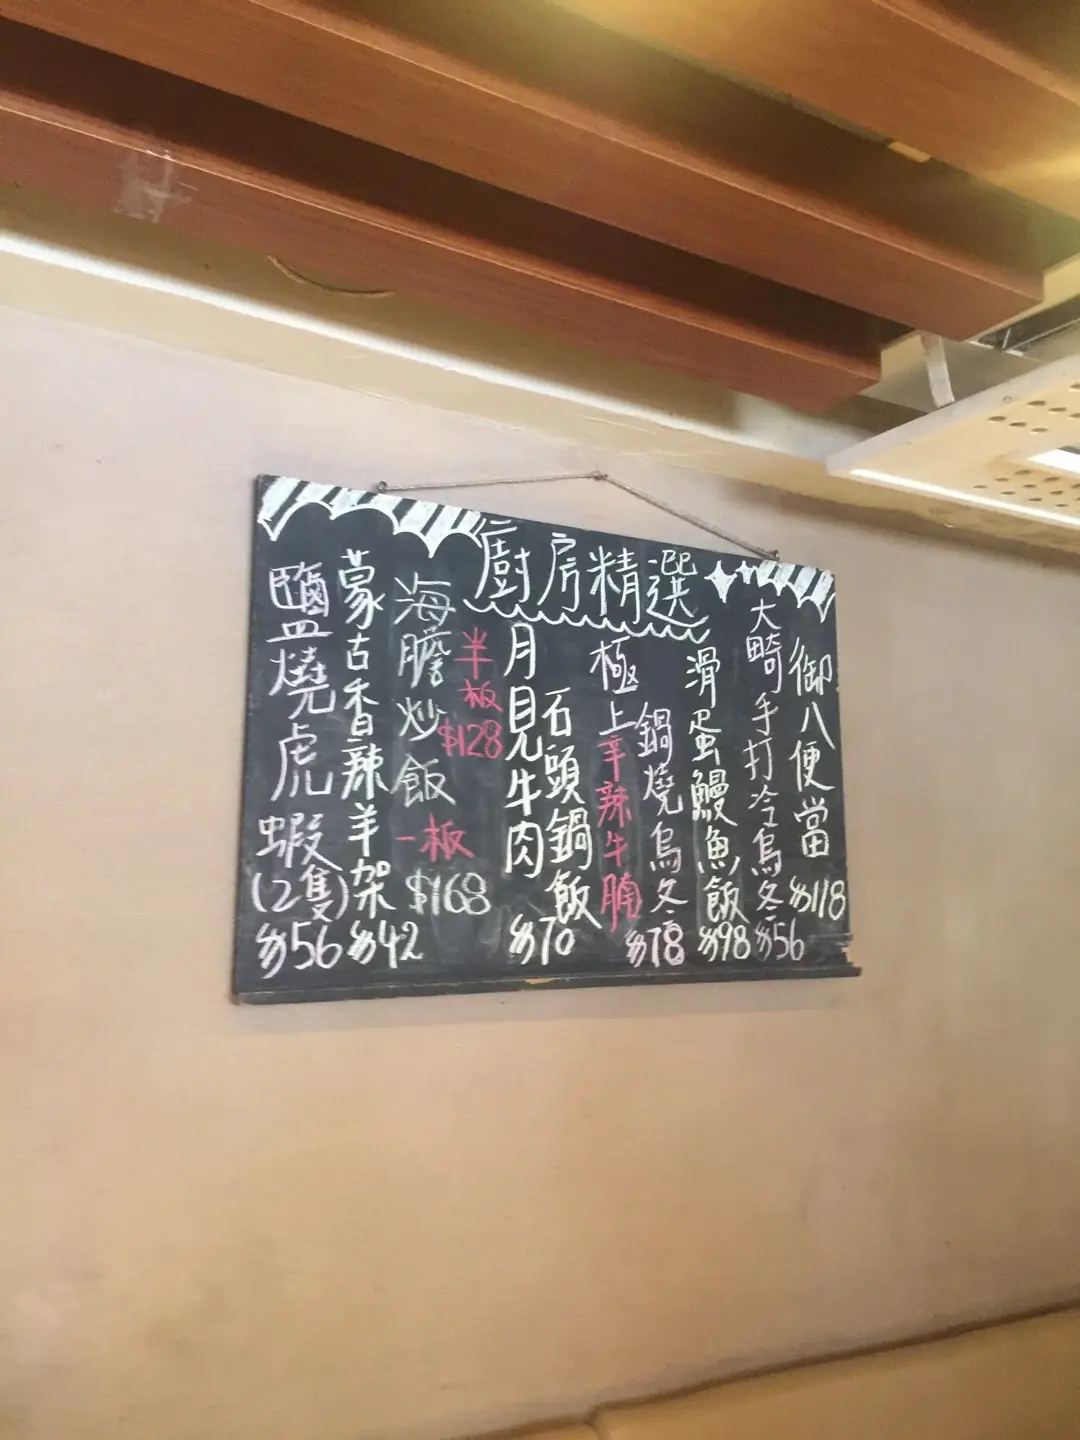 廚房精選
御八便當
$118
大畸手打冷烏冬
$56
滑蛋鰻魚飯
$98
極上辛辣牛腩
鍋燒烏冬
$78
月見牛肉
石頭鍋飯
$70
海膽炒飯
半板
$128
一板
$168
蒙古香辣羊架
$42
鹽燒虎蝦
(2隻)
$56